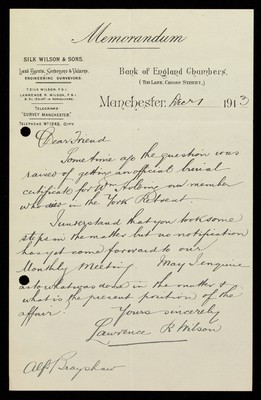 Memorandum
SILK WILSON & SONS.
Land Agents, Surveyors & Valuers.
ENGINEERING SURVEYORS.
T. SILK WILSON, F.S.I.
LAWRENCE R. WILSON, F.S.I.
TELEGRAMS
"SURVEY MANCHESTER."
TELEPHONE Nº 1642, CITY.
Bank of England Chambers,
(TIB LANE, CROSS STREET,)
Manchester, Dec 1 1913
Dear Friend
Some time ago the question was
raised of getting an official burial
certificate for Wm our member
who died in the York Retreat.
I understand that you took some
steps in the matter but no notification
has yet come forward to our
Monthly Meeting. May I enquire
as to what was done in the matter &
what is the present position of the
affair?
Yours sincerely
Lawrence R Wilson
Alfd Brayshaw